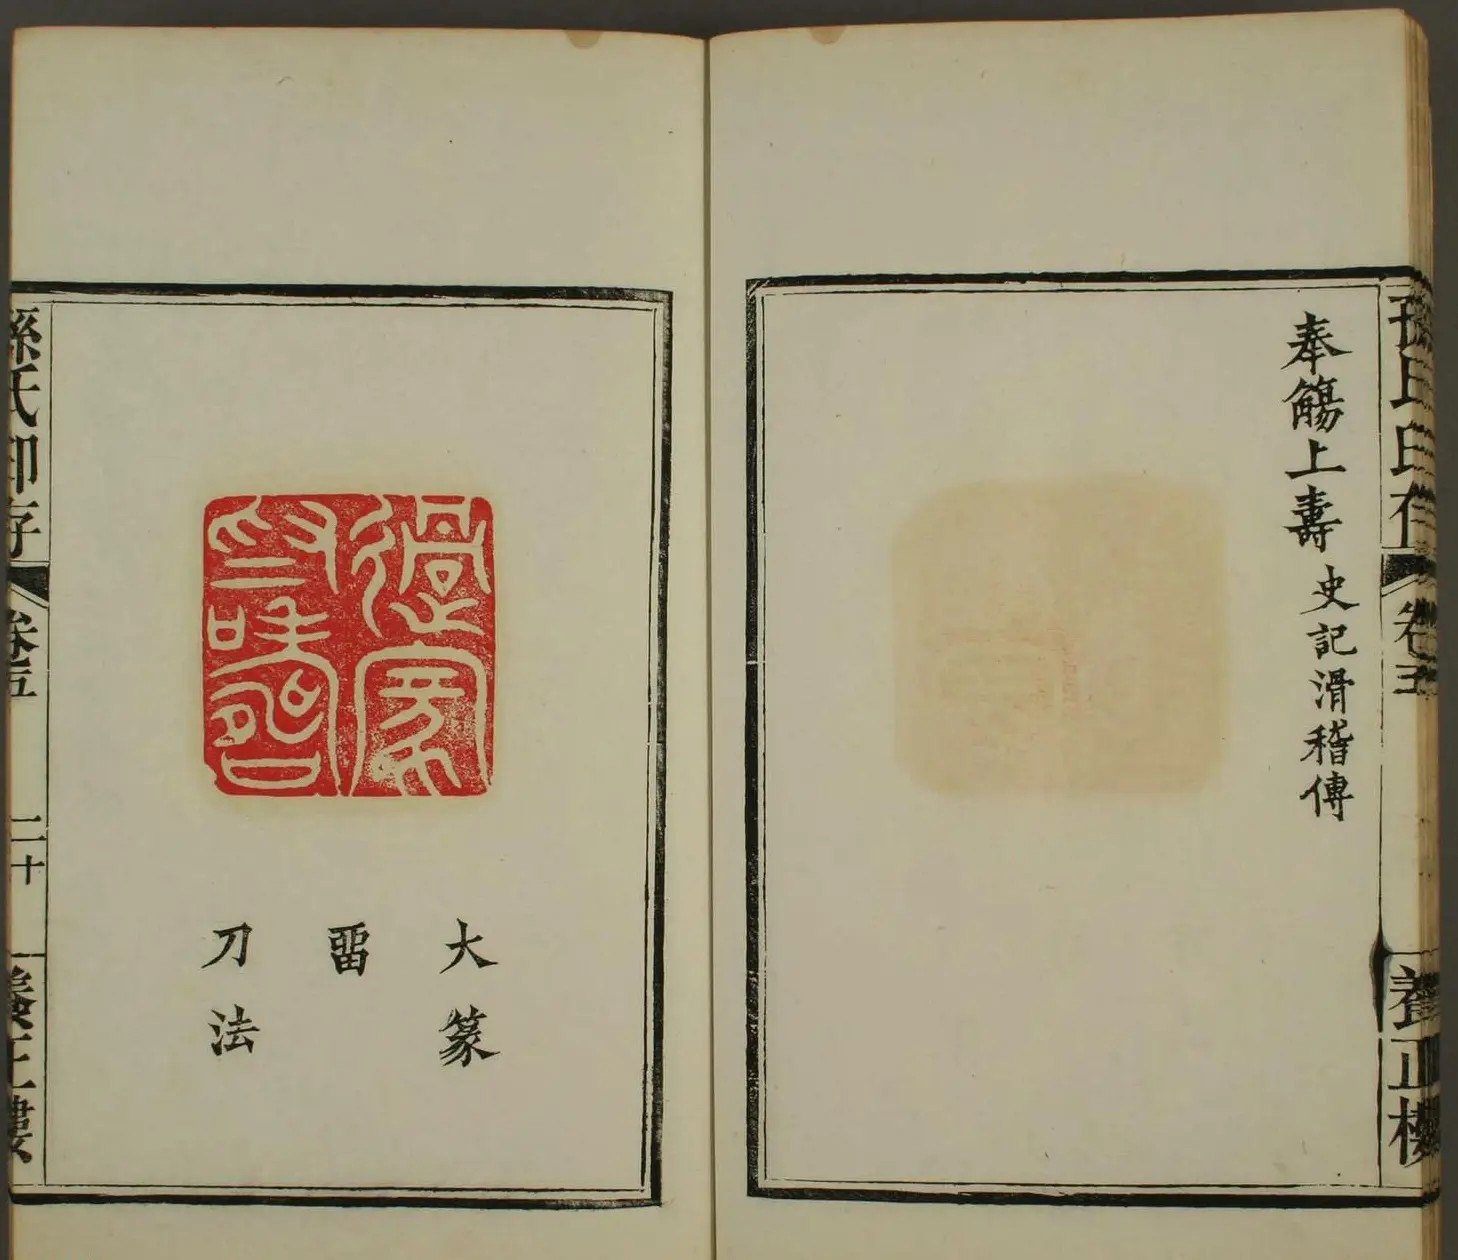 孫氏印存
卷五
養正樓
奉觴上壽 史記滑稽傳
大篆
畱
刀法
孫氏印存
卷五
二十
養正樓